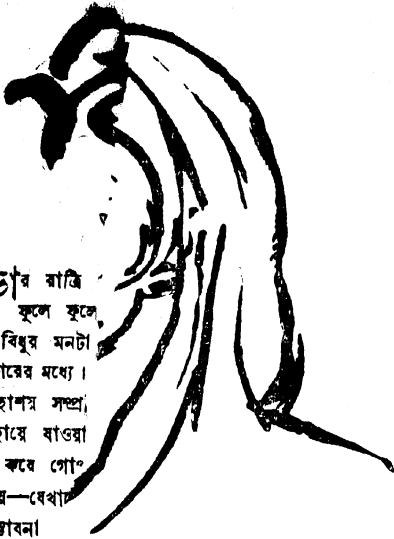 র রাত্রি
ফুলে ফুলে
বিধুর মনটা
রের মধ্যে।
হাশয় সম্প্র
য়ে যাওয়া
করে গো
য়—যেখা
াবনা